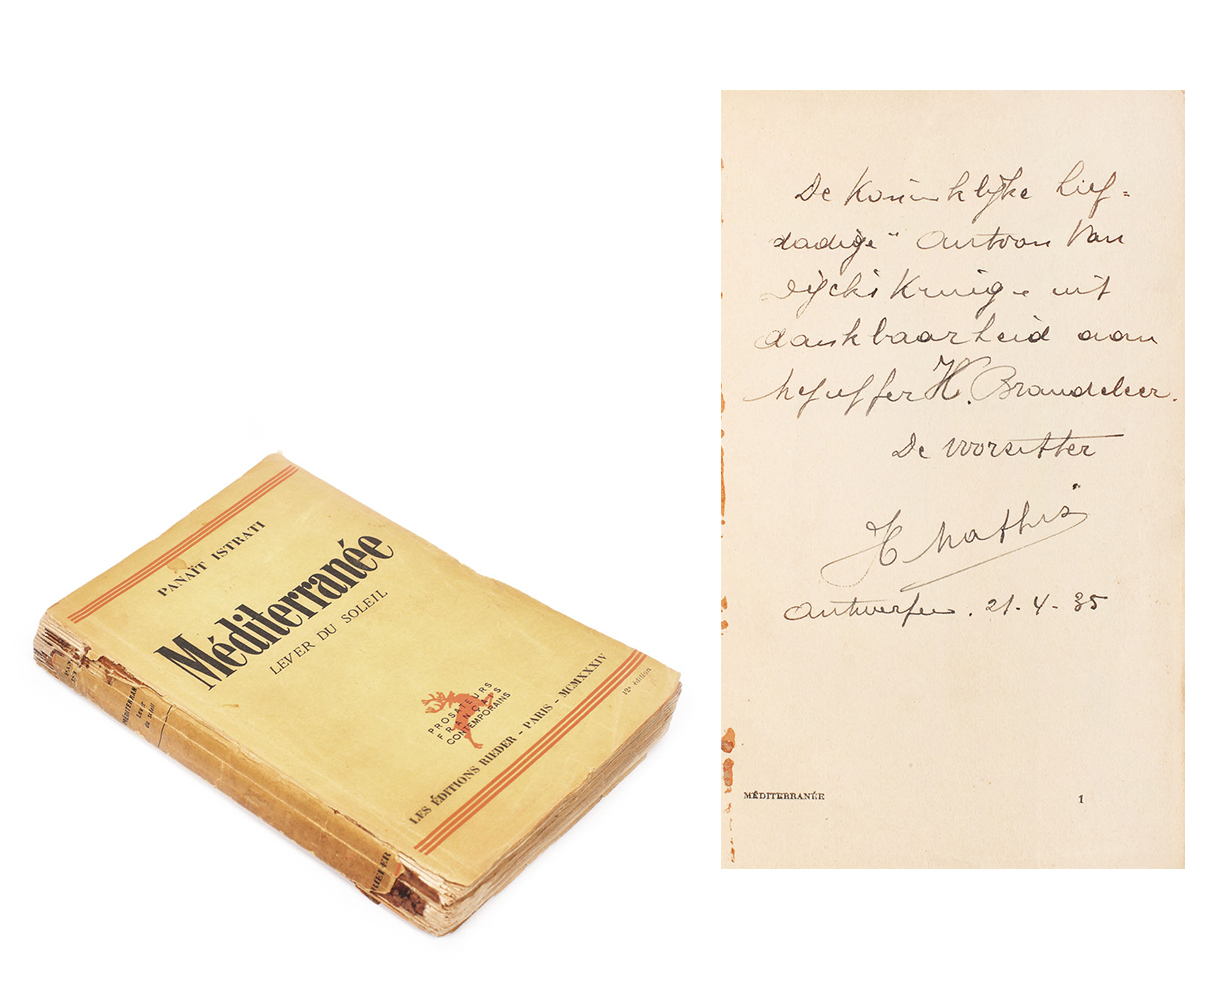 PANAÏT ISTRATI
Méditerranée
LEVER DU SOLEIL
PROSATEURS
FRANÇAIS
CONTEMPORAINS
LES ÉDITIONS RIEDER - PARIS - MCMXXXIV
12e édition
MÉDITERRAN
Lever
du soleil
RIEDER
De Koninklijke Lief=
dadige" Antoon Van
Dijcks Kring - uit
dankbaarheid aan
Mejuffer H. Brandeleer.
De Voorzitter
H Mathis
Antwerpen. 21-4-35
MÉDITERRANÉE
1